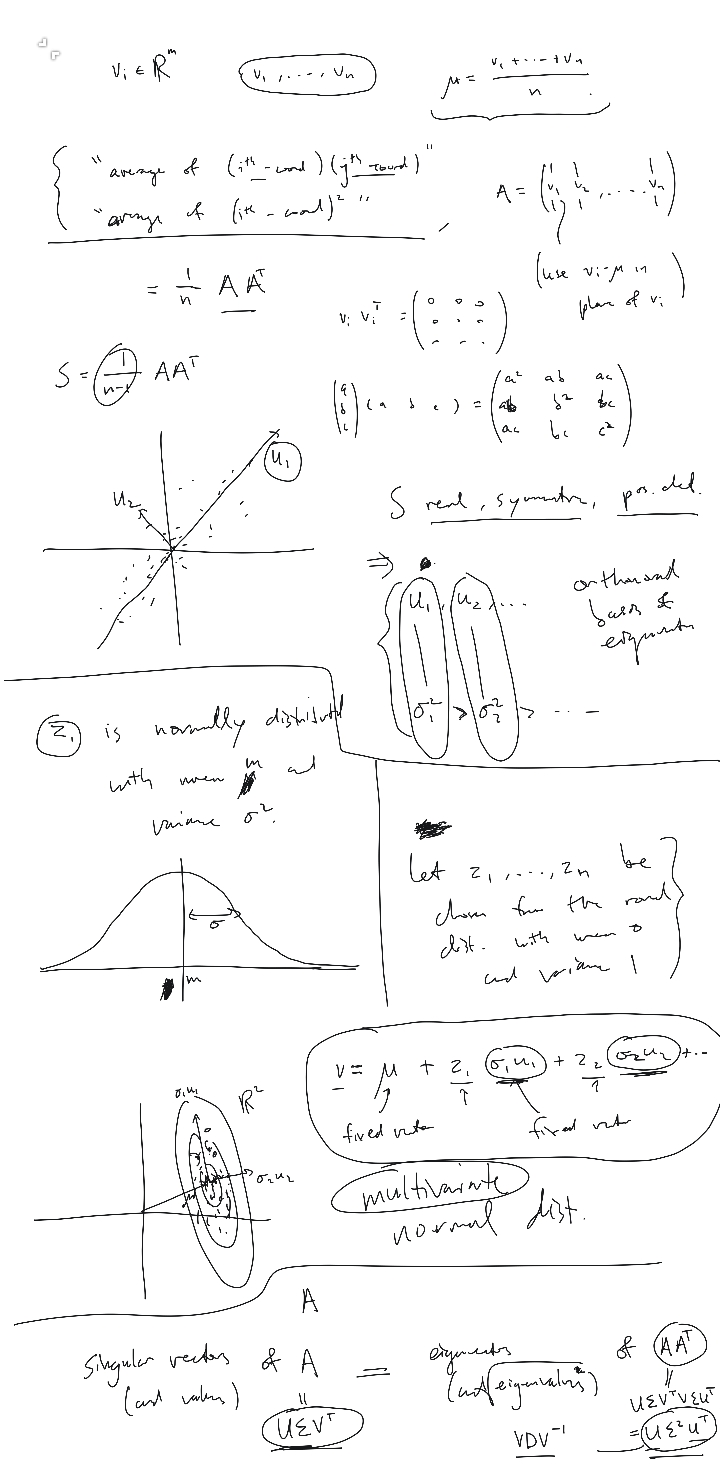 vᵢ ∈ ℝᵐ
v₁, ..., vₙ
μ = (v₁ + ... + vₙ) / n
"average of (iᵗʰ-coord)(jᵗʰ-coord)"
"average of (iᵗʰ-coord)²"
A = (v₁ v₂, .... vₙ)
(use vᵢ-μ in
place of vᵢ)
= 1/n A Aᵀ
vᵢ vᵢᵀ =
S = 1/(n-1) AAᵀ
(a b c) (a b c) =
a² ab ac
ab b² bc
ac bc c²
u₁
u₂
S real, symmetric, pos. def.
⇒
u₁, u₂, ...
σ₁² > σ₂² > ...
orthonormal
basis of
eigenvectors
z₁ is normally distributed
with mean m and
variance σ².
σ
m
Let z₁, ..., zₙ be
chosen from the normal
dist. with mean 0
and variance 1
v = μ + z₁ σ₁u₁ + z₂ σ₂u₂ + ...
fixed vector
fixed vector
ℝ²
σ₁u₁
σ₂u₂
multivariate
normal dist.
A
singular vectors of A = eigenvectors of AAᵀ
(and values)
(and eigenvalues)
UΣVᵀ
VDV⁻¹
UΣVᵀVΣUᵀ
= UΣ²Uᵀ